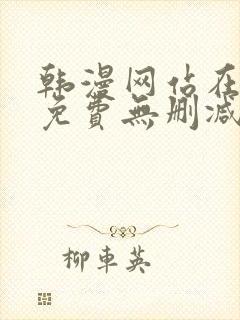 韩漫网站在
免費無删减
柳車英